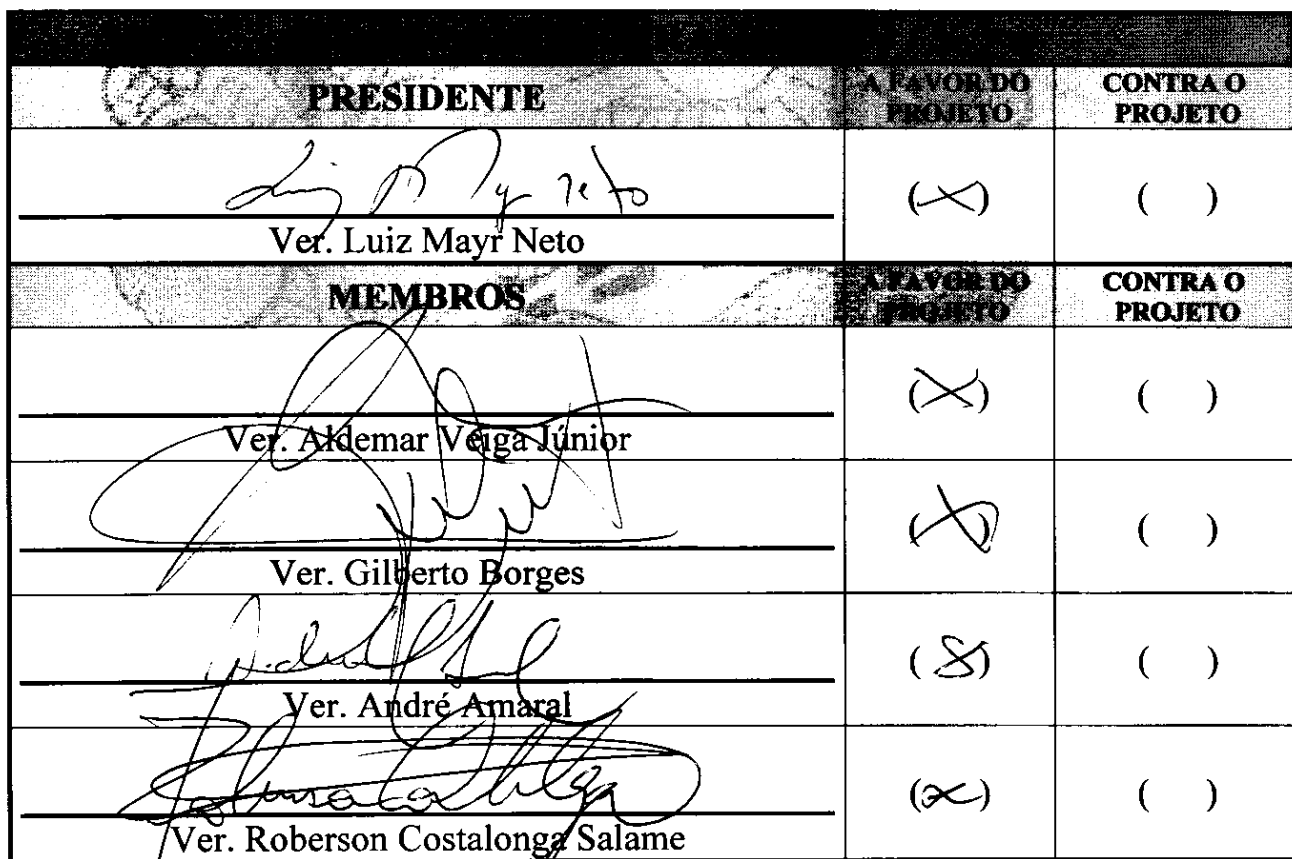 PRESIDENTE
A FAVOR DO
PROJETO
CONTRA O
PROJETO
Luiz Mayr Neto
(X)
( )
Ver. Luiz Mayr Neto
MEMBROS
A FAVOR DO
PROJETO
CONTRA O
PROJETO
(X)
( )
Ver. Aldemar Veiga Júnior
(X)
( )
Ver. Gilberto Borges
(X)
( )
Ver. André Amaral
(X)
( )
Ver. Roberson Costalonga Salame